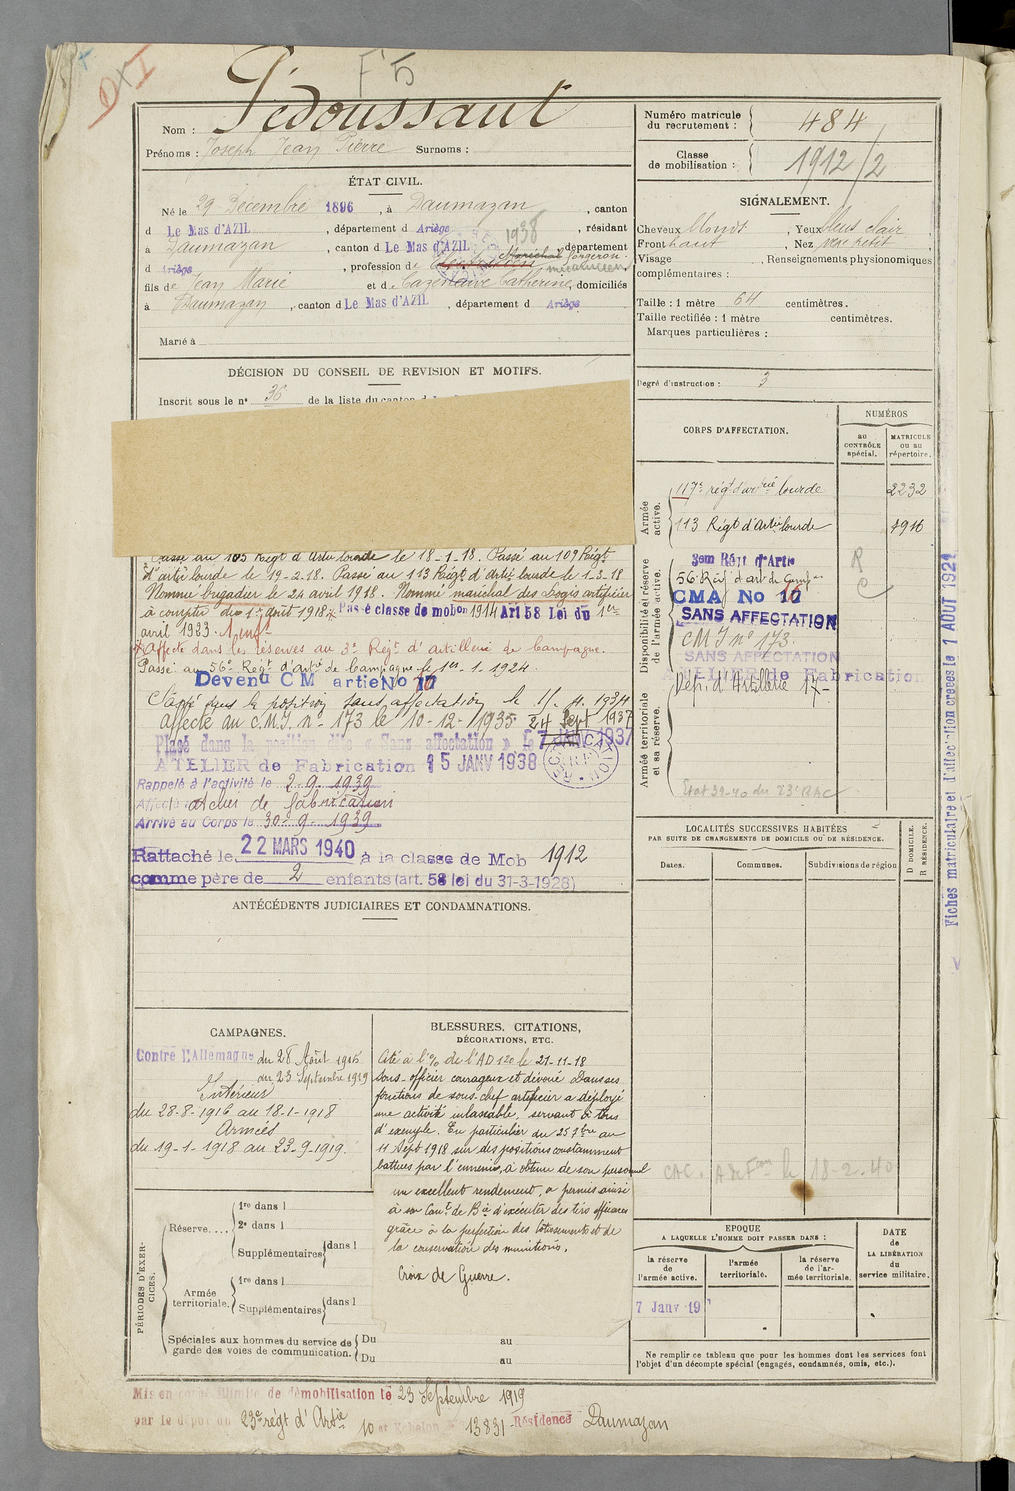 F 5
Nom : Pédoussaut
Prénoms : Joseph Jean Pierre Surnoms :
ÉTAT CIVIL.
Né le 29 Décembre 1896, à Daumazan, canton
d Le Mas d'AZIL, département d Ariège, résidant
à Daumazan, canton d Le Mas d'AZIL, département
1938
d Ariège, profession de Maréchal forgeron.
mécanicien
fils de Jean Marie et de Cazenave Catherine, domiciliés
à Daumazan, canton d Le Mas d'AZIL, département d Ariège
Marié à
DÉCISION DU CONSEIL DE REVISION ET MOTIFS.
Inscrit sous le n° 36 de la liste du canton d
Passé au 105 Régt d'Artie lourde le 18-1-18. Passé au 109 Régt
d'artie lourde le 19-2-18. Passé au 113 Régt d'Artie lourde le 1-3-18
Nommé brigadier le 24 avril 1918. Nommé maréchal des Logis artificier
à compter du 1er août 1918. Passé classe de mobon 1914 Art 58 Loi du 1er
avril 1923.
Affecté dans les réserves au 3e Régt d'artillerie de Campagne.
Passé au 56e Régt d'Artie de Campagne le 1er-1-1924.
Devenu C M artie No 17
Classé dans la position sans affectation le 15.4.1934
Affecté au C.M.I. n° 173 le 10-12-1935 24 Sept 1937
Plasé dans la position dite « Sans affectation » le 7 JANV 1937
ATELIER de Fabrication 15 JANV 1938
Rappelé à l'activité le 2-9-1939
Affecté atelier de fabrication
Arrivé au Corps le 30-9-1939
Rattaché le 22 MARS 1940 à la classe de Mob 1912
comme père de 2 enfants (art. 58 loi du 31-3-1928)
ANTÉCÉDENTS JUDICIAIRES ET CONDAMNATIONS.
CAMPAGNES.
Contre l'Allemagne du 28 Août 1916
au 23 Septembre 1919
Intérieur
du 28-8-1916 au 18-1-1918
Armées
du 19-1-1918 au 23-9-1919.
BLESSURES, CITATIONS,
DÉCORATIONS, ETC.
Cité à l'o/ de l'AD 120 le 21-11-18
Sous-officier courageux et dévoué. Dans ses
fonctions de sous-chef artificier a déployé
une activité inlassable, servant à tous
d'exemple. En particulier du 25 7bre au
11 Sept 1918 sur des positions constamment
battues par l'ennemi, a obtenu de son personnel
un excellent rendement, a permis ainsi
à son Cant de Bie d'exécuter des tirs efficaces
grâce à la perfection des lotissements et de
la conservation des munitions.
Croix de Guerre.
PÉRIODES D'EXERCICES.
Réserve....
1re dans l
2e dans l
Supplémentaires dans l
Armée territoriale.
1re dans l
Supplémentaires dans l
Spéciales aux hommes du service de garde des voies de communication.
Du au
Du au
Mis en congé illimité de démobilisation le 23 Septembre 1919
par le dépôt du 23e régt d'Artie 10 et Echelon n° 13831 Résidence Daumazan
Numéro matricule du recrutement : 484
Classe de mobilisation : 1912/2
SIGNALEMENT.
Cheveux blonds, Yeux bleus clair
Front haut, Nez petit
Visage, Renseignements physionomiques
complémentaires :
Taille : 1 mètre 64 centimètres.
Taille rectifiée : 1 mètre centimètres.
Marques particulières :
Degré d'instruction : 3
CORPS D'AFFECTATION.
NUMÉROS
au CONTRÔLE spécial.
MATRICULE ou au répertoire.
Armée active.
117e régt d'artie lourde 2232
113 Régt d'Artie lourde 4916
Disponibilité et réserve de l'armée active.
3em Régt d'Artie
56 Régt d'art de Camp
CMA No 17
SANS AFFECTATION
CMI n° 173.
SANS AFFECTATION
ATELIER de Fabrication
R
C
Armée territoriale et sa réserve.
Dép. d'Artillerie 17
Etat 39-40 du 23e BAC
LOCALITÉS SUCCESSIVES HABITÉES
PAR SUITE DE CHANGEMENTS DE DOMICILE OU DE RÉSIDENCE.
Dates.
Communes.
Subdivisions de région
D DOMICILE.
R RÉSIDENCE.
le 18-2-40
EPOQUE
A LAQUELLE L'HOMME DOIT PASSER DANS :
la réserve de l'armée active.
l'armée territoriale.
la réserve de l'armée territoriale.
DATE de LA LIBÉRATION du service militaire.
7 Janv 19
Ne remplir ce tableau que pour les hommes dont les services font
l'objet d'un décompte spécial (engagés, condamnés, omis, etc.).
Fiches matriculaire et d'affectation créées le 1 AOUT 1921